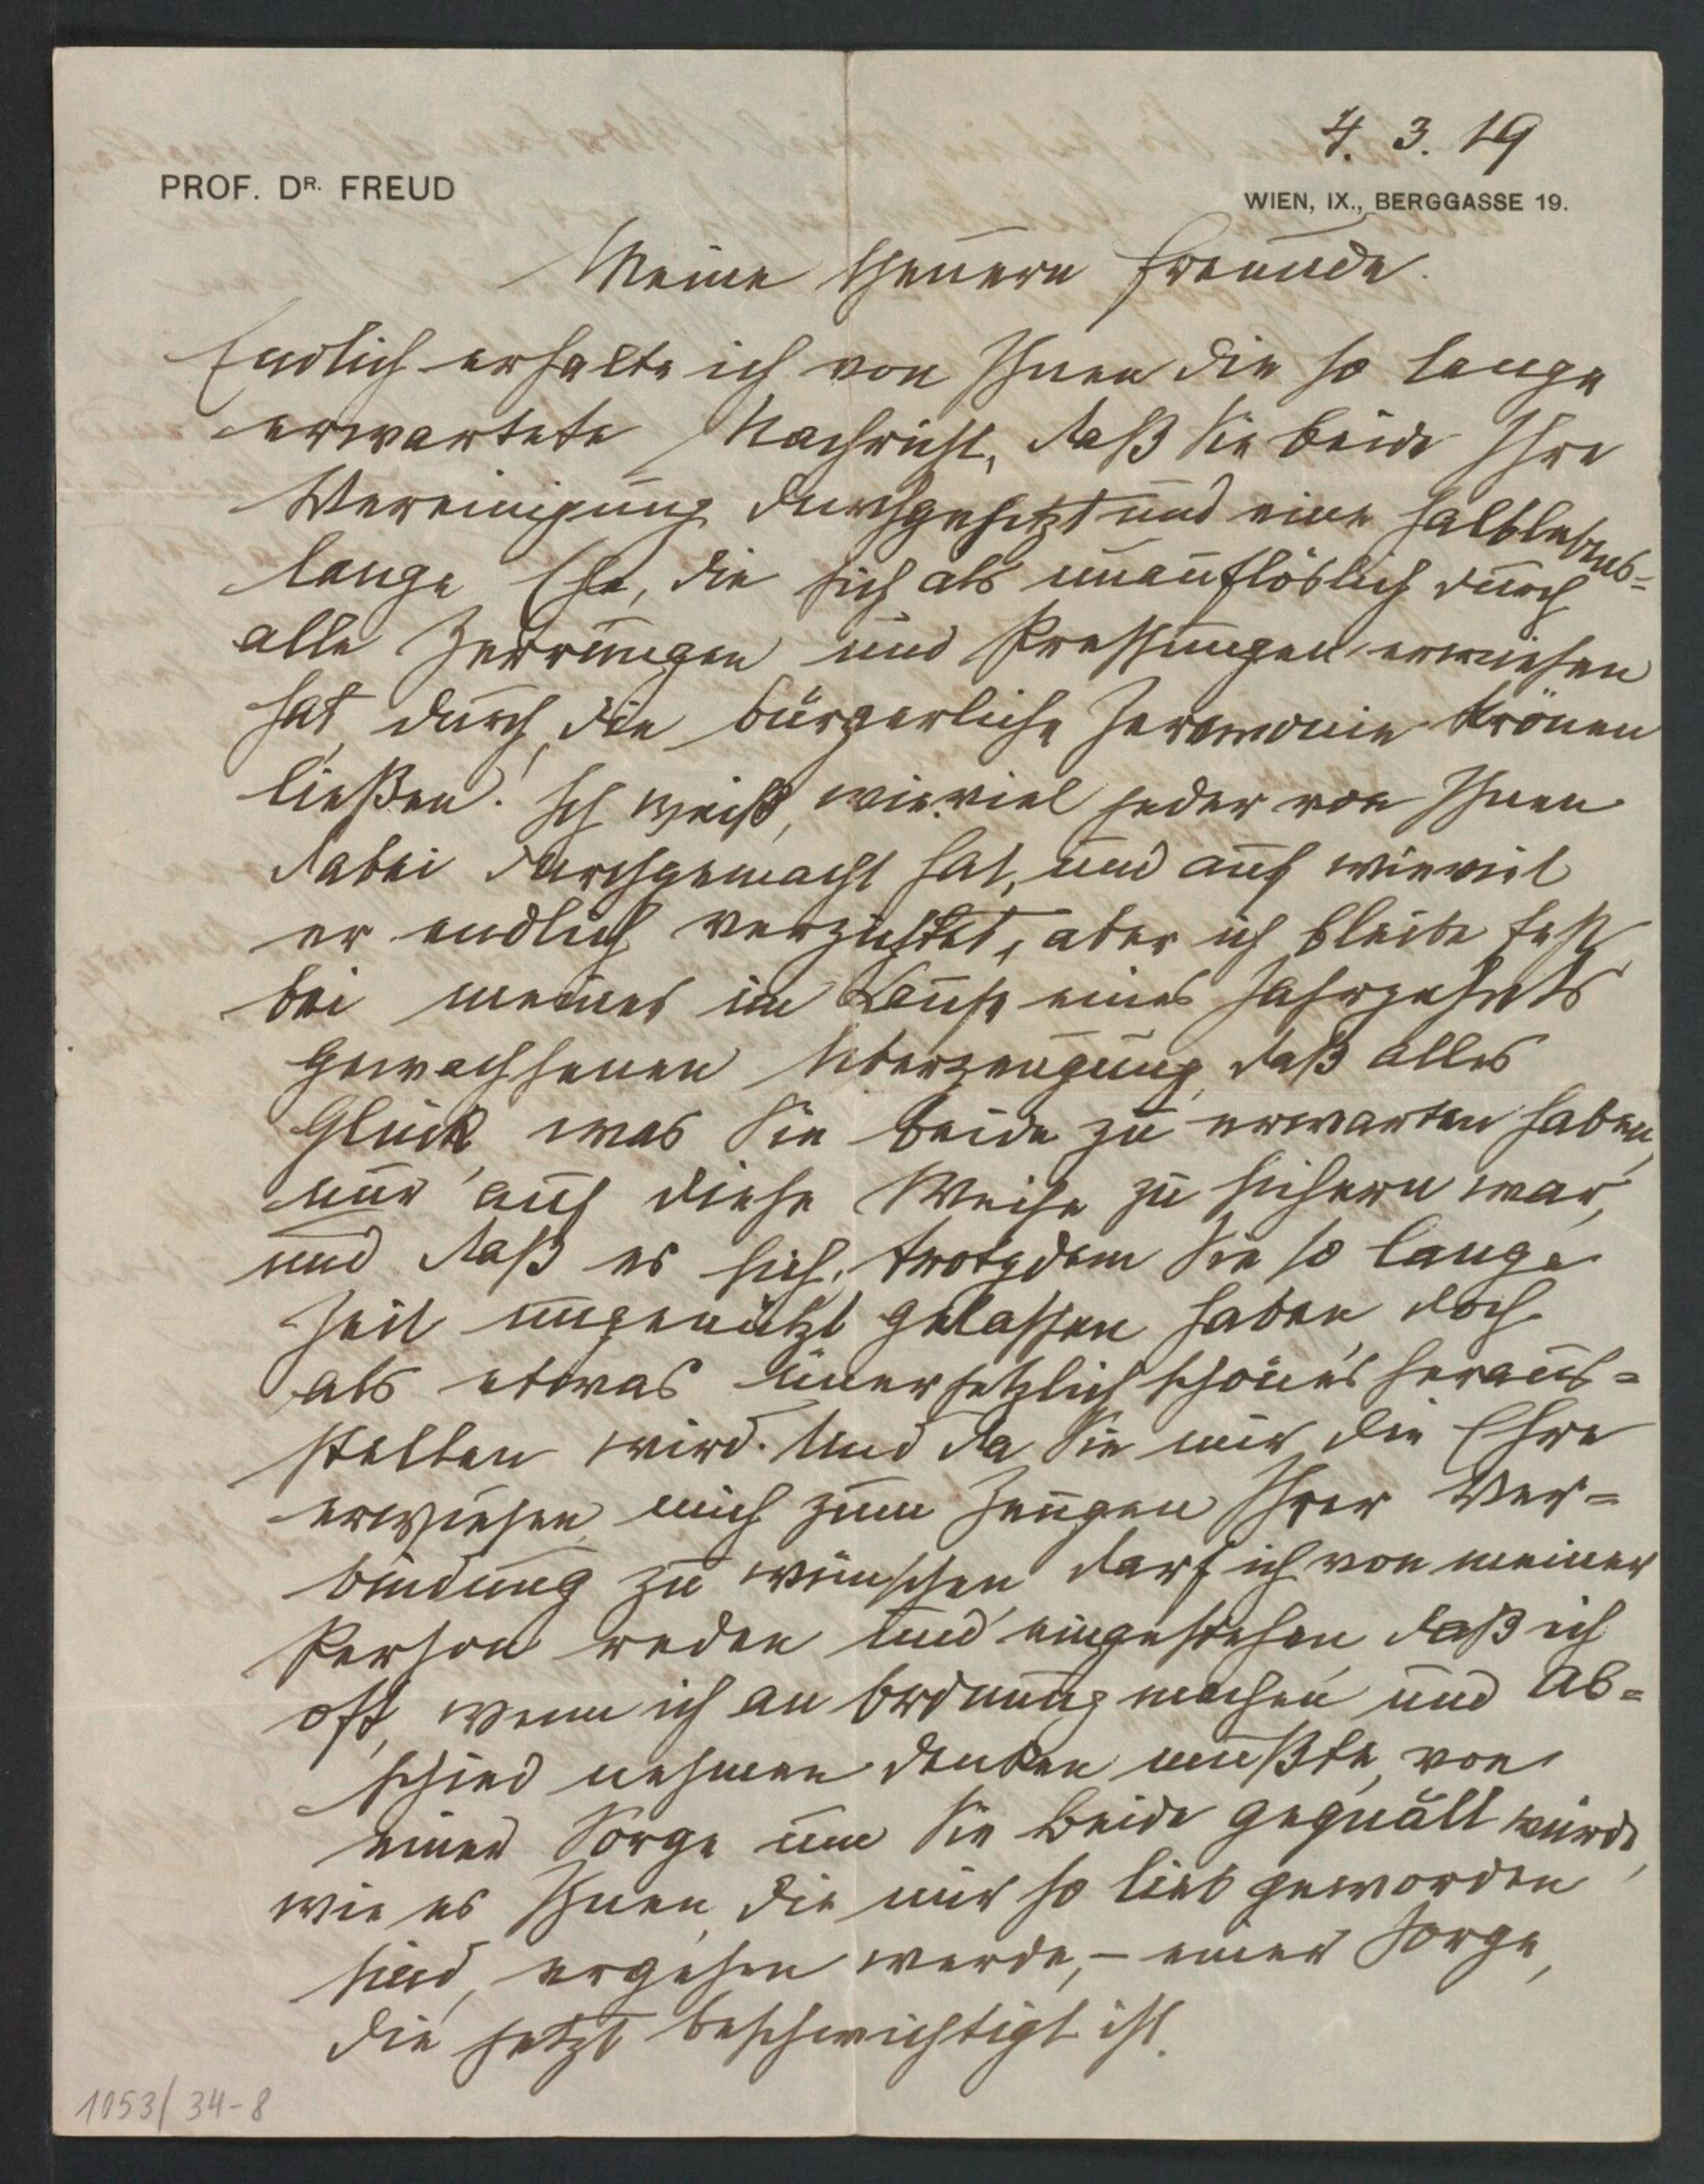 4. 3. 19
PROF. DR. FREUD
WIEN, IX., BERGGASSE 19.
Meine theuern Freunde.
Endlich erhalte ich von Ihnen die so lange
erwartete Nachricht, daß Sie beide Ihre
Vereinigung durchgesetzt und eine halblebens-
lange Ehe, die sich als unauflöslich durch
alle Zerrungen und Pressungen erwiesen
hat, durch die bürgerliche Zeremonie krönen
ließen. Ich weiß, wieviel jeder von Ihnen
dabei durchgemacht hat, und auf wieviel
er endlich verzichtet, aber ich bleibe fest
bei meiner im Laufe eines Jahrzehnts
gewachsenen Überzeugung, daß alles
Glück, was Sie beide zu erwarten haben,
nur auf diese Weise zu sichern war,
und daß es sich, trotzdem Sie so lange
Zeit ungenützt gelassen haben, doch
als etwas unersetzlich schönes heraus-
stellen wird. Und da Sie mir die Ehre
erwiesen, mich zum Zeugen Ihrer Ver-
bindung zu wünschen, darf ich von meiner
Person reden und eingestehen, daß ich
oft, wenn ich an Ordnung machen und Ab-
schied nehmen denken mußte, von
einer Sorge um Sie beide gequält wurde,
wie es Ihnen, die mir so lieb geworden
sind, ergehen werde, – einer Sorge,
die jetzt beschwichtigt ist.
1053/34-8